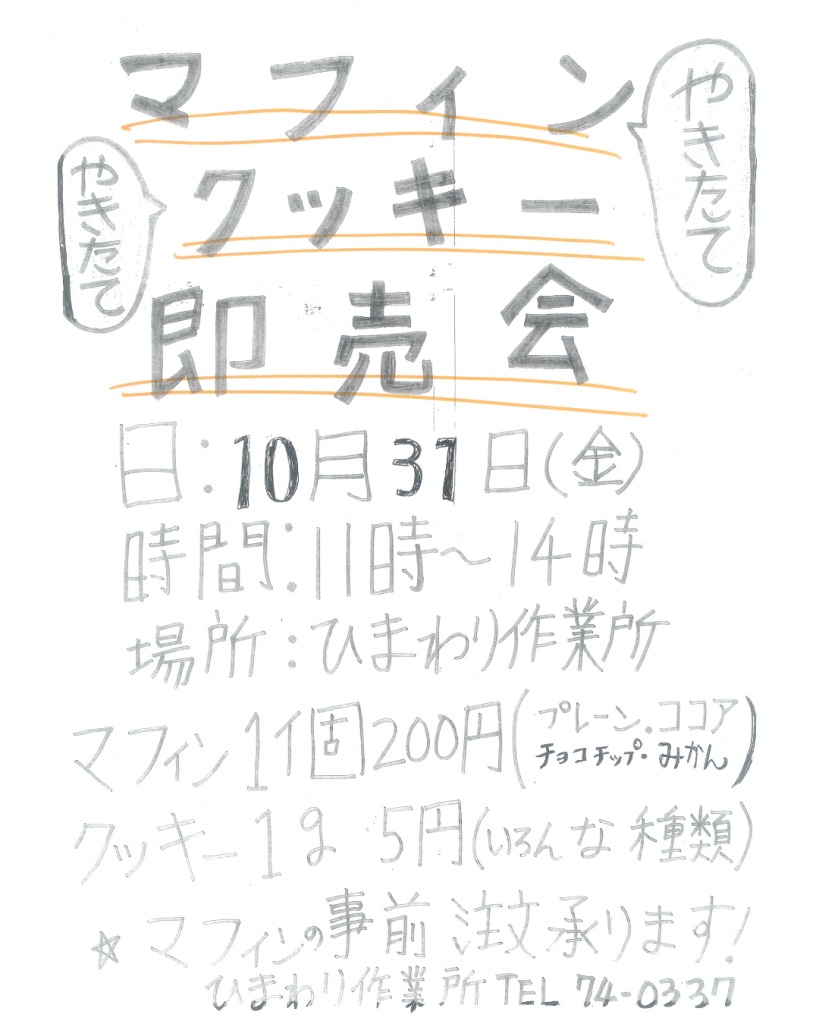 マフィン
やきたて
クッキー
やきたて
即売会
日：10月31日（金）
時間：11時～14時
場所：ひまわり作業所
マフィン1個200円（プレーン．ココア
チョコチップ・みかん）
クッキー1g 5円（いろんな種類）
☆マフィンの事前注文承ります！
ひまわり作業所TEL 74-0337